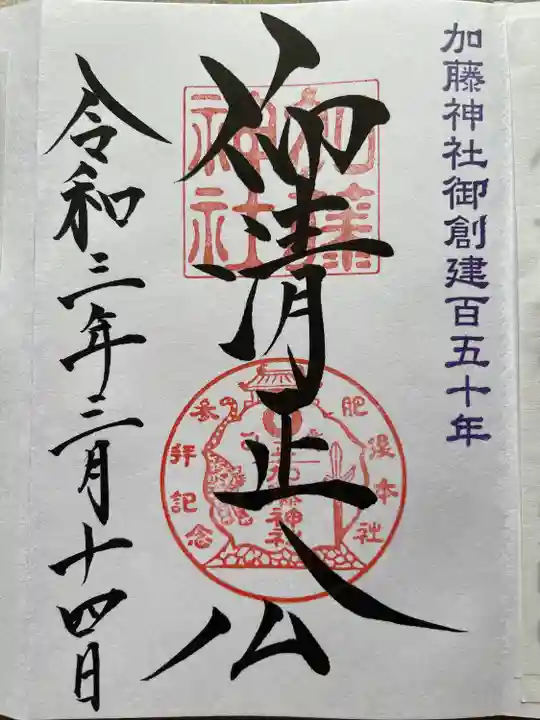 加藤神社御創建百五十年
加藤神社
仰清正公
肥後本社
参拝記念
正一位
加藤神社
令和三年三月十四日